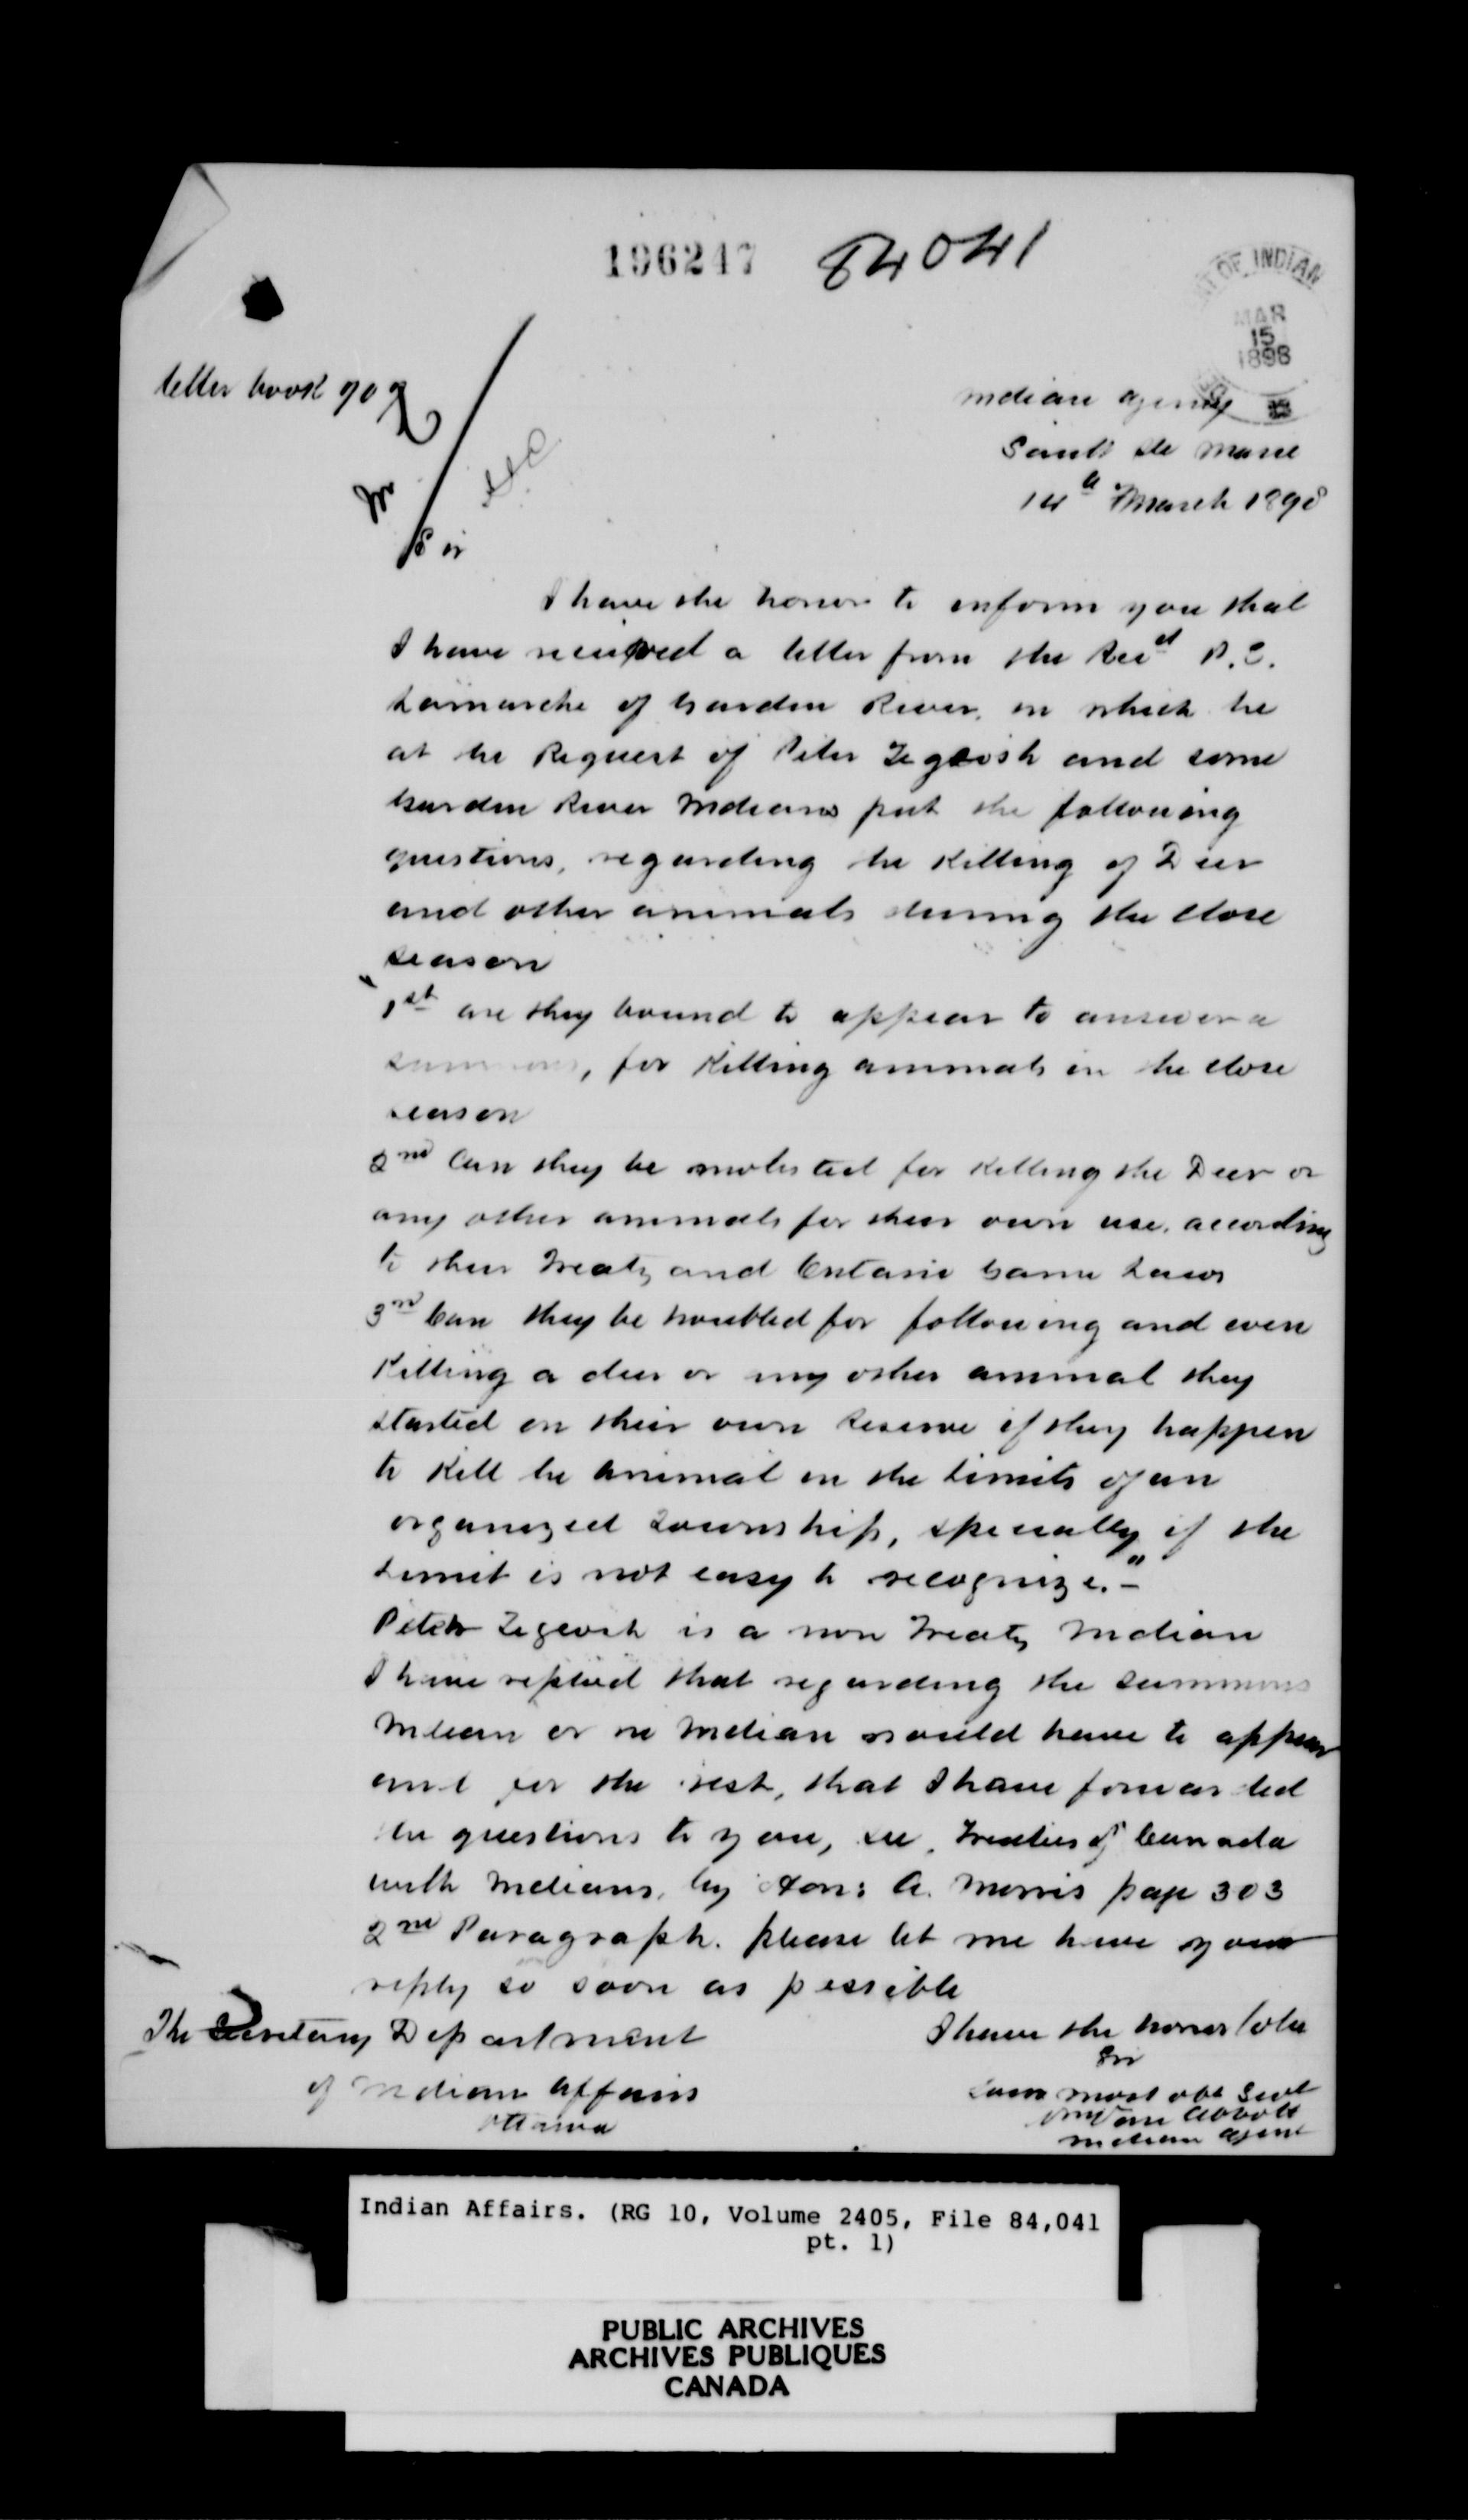 196247 84041
OF INDIAN
MAR
15
1898
letter book 909
Indian agency
Sault Ste Marie
14th March 1898
Sir
I have the honor to inform you that
I have received a letter from the Revd
Lamarche of Garden River, in which he
at the Request of Peter Tegoosh and some
Garden River Indians put the following
questions, regarding the Killing of Deer
and other animals during the close
season
"1st are they bound to appear to answer a
summons, for Killing animals in the close
season
2nd Can they be molested for Killing the Deer or
any other animals for their own use, according
to their Treaty and Ontario Game Laws
3rd Can they be troubled for following and even
Killing a deer or any other animal they
started on their own Reserve if they happen
to Kill the animal in the Limits of an
organized Township, specially if the
Limit is not easy to recognize."-
Peter Tegoosh is a non Treaty Indian
I have replied that regarding the summons
Indian or no Indian would have to appear
and for the rest, that I have forwarded
the questions to you, see, Treaties of Canada
with Indians, by Hon: A. Morris page 303
2nd Paragraph. please let me have your
reply so soon as possible
The Secretary Department
of Indian Affairs
Ottawa
I have the honor to be
Sir
your most obt Servt
Wm Van Abbott
Indian Agent
Indian Affairs. (RG 10, Volume 2405, File 84,041
pt. 1)
PUBLIC ARCHIVES
ARCHIVES PUBLIQUES
CANADA